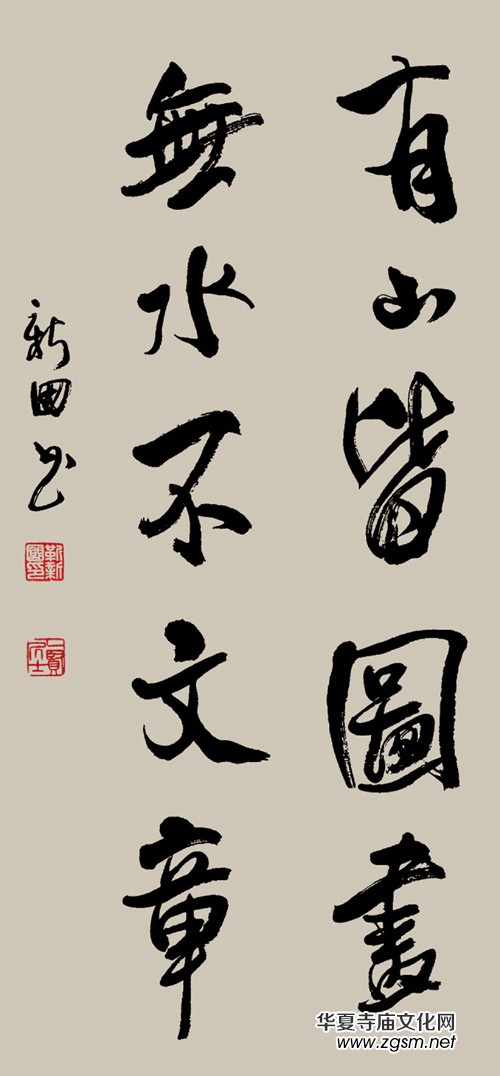 有山皆圖畫
無水不文章
新国书
靳新國印
华夏寺庙文化网
www.zgsm.net